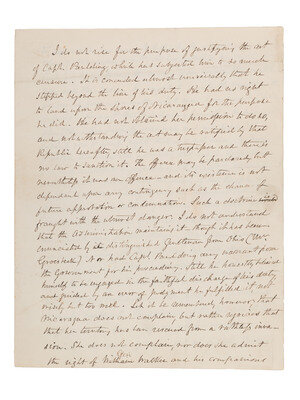 I do not rise for the purpose of justifying the act
of Capt. Paulding, which has subjected him to so much
censure. It is conceded almost universally that he
stepped beyond the line of his duty. He had no right
to land upon the shores of Nicaragua for the purpose
he did. She had not tolerated her permission to do so,
and notwithstanding the act may be ratified by that
Republic hereafter, still he was a trespasser and there is
no law to sanction it. The offence may be pardoned, but
nevertheless it was an offence – and its existence is not
dependent upon any contingency such as the chance of
future approbation or condemnation. Such a doctrine
fraught with the utmost danger. I do not understand
that the Administration maintains it, though it has been
enunciated by the distinguished Gentleman from Ohio (Mr.
Groesbeck) Nor had Capt. Paulding any warrant from
the Government for his proceeding. Still he honestly believed
himself to be engaged in the faithful discharge of his duty,
and guided by an error of judgment he fulfilled it, not
wisely but too well. Let it be remembered, however, that
Nicaragua does not complain, but rather rejoices that
that her territory has been rescued from a ruthless inva-
sion. She does not complain, nor does she admit
the right of Gen William Walker and his companions